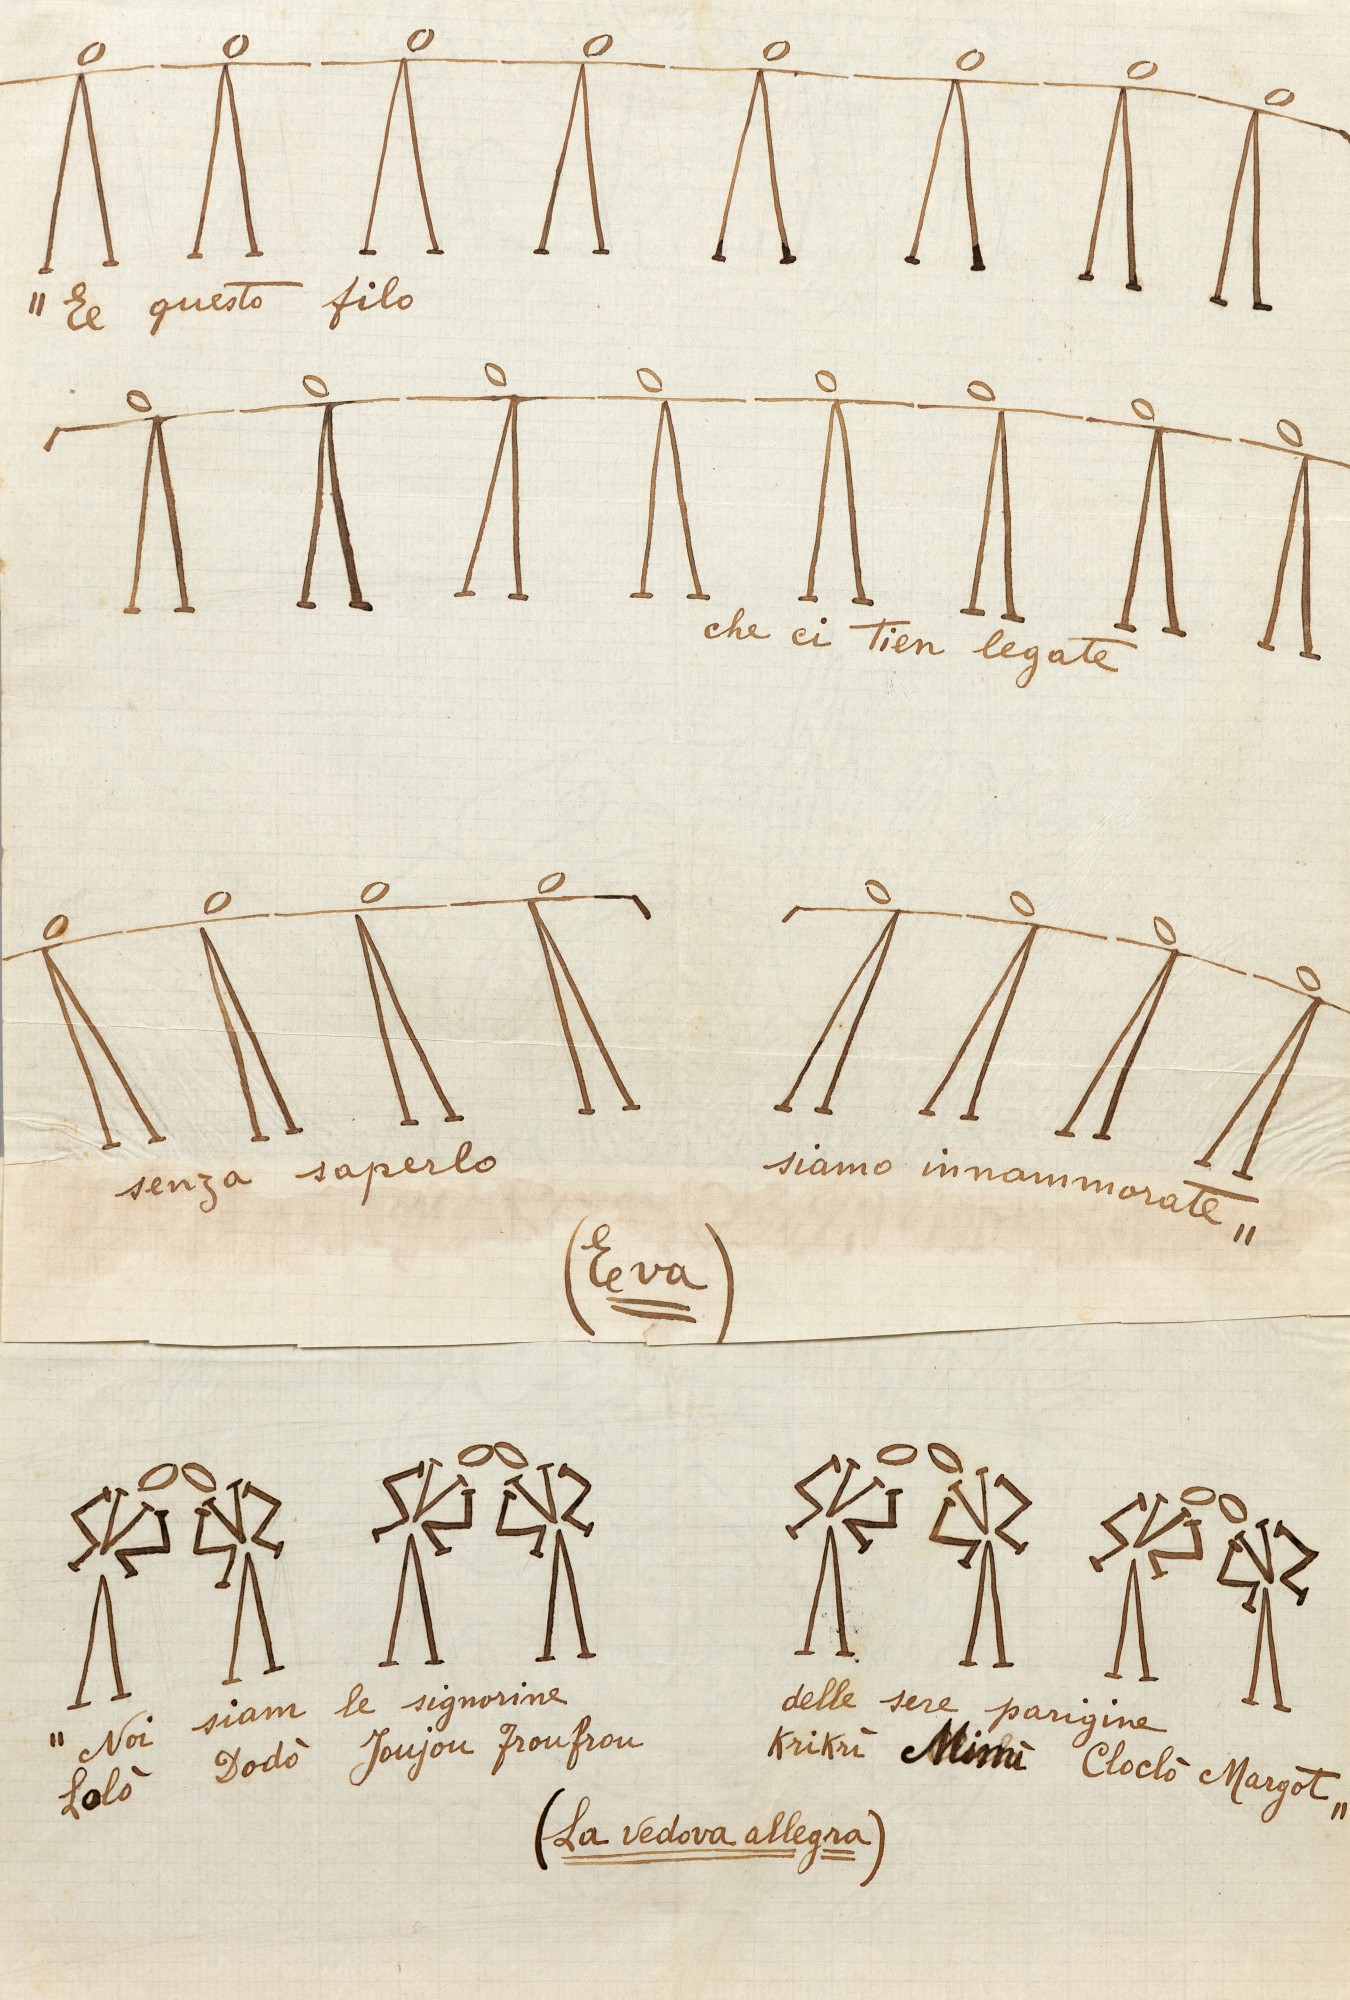 "Ee questo filo
che ci tien legate
senza saperlo
siamo innammorate"
(Eva)
"Noi siam le signorine
Lolò Dodò Joujou Froufrou
delle sere parigine
Krikrì Mimì Cloclò Margot"
(La vedova allegra)